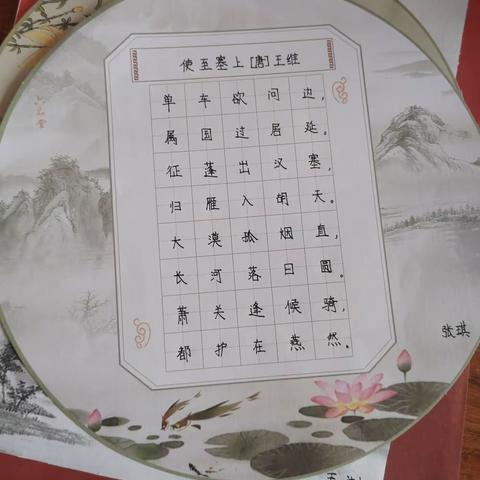 使至塞上 [唐]王维
单车欲问边,
属国过居延。
征蓬出汉塞,
归雁入胡天。
大漠孤烟直,
长河落日圆。
萧关逢候骑,
都护在燕然。
张琪